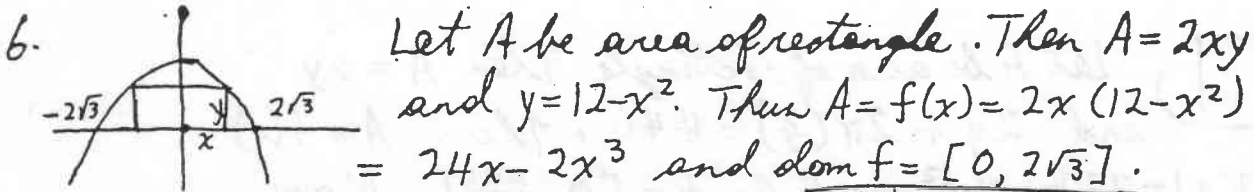 6.
Let A be area of rectangle. Then A = 2xy
-2√3 y 2√3 and y = 12-x². Thus A = f(x) = 2x (12-x²)
x
= 24x - 2x³ and dom f = [0, 2√3].